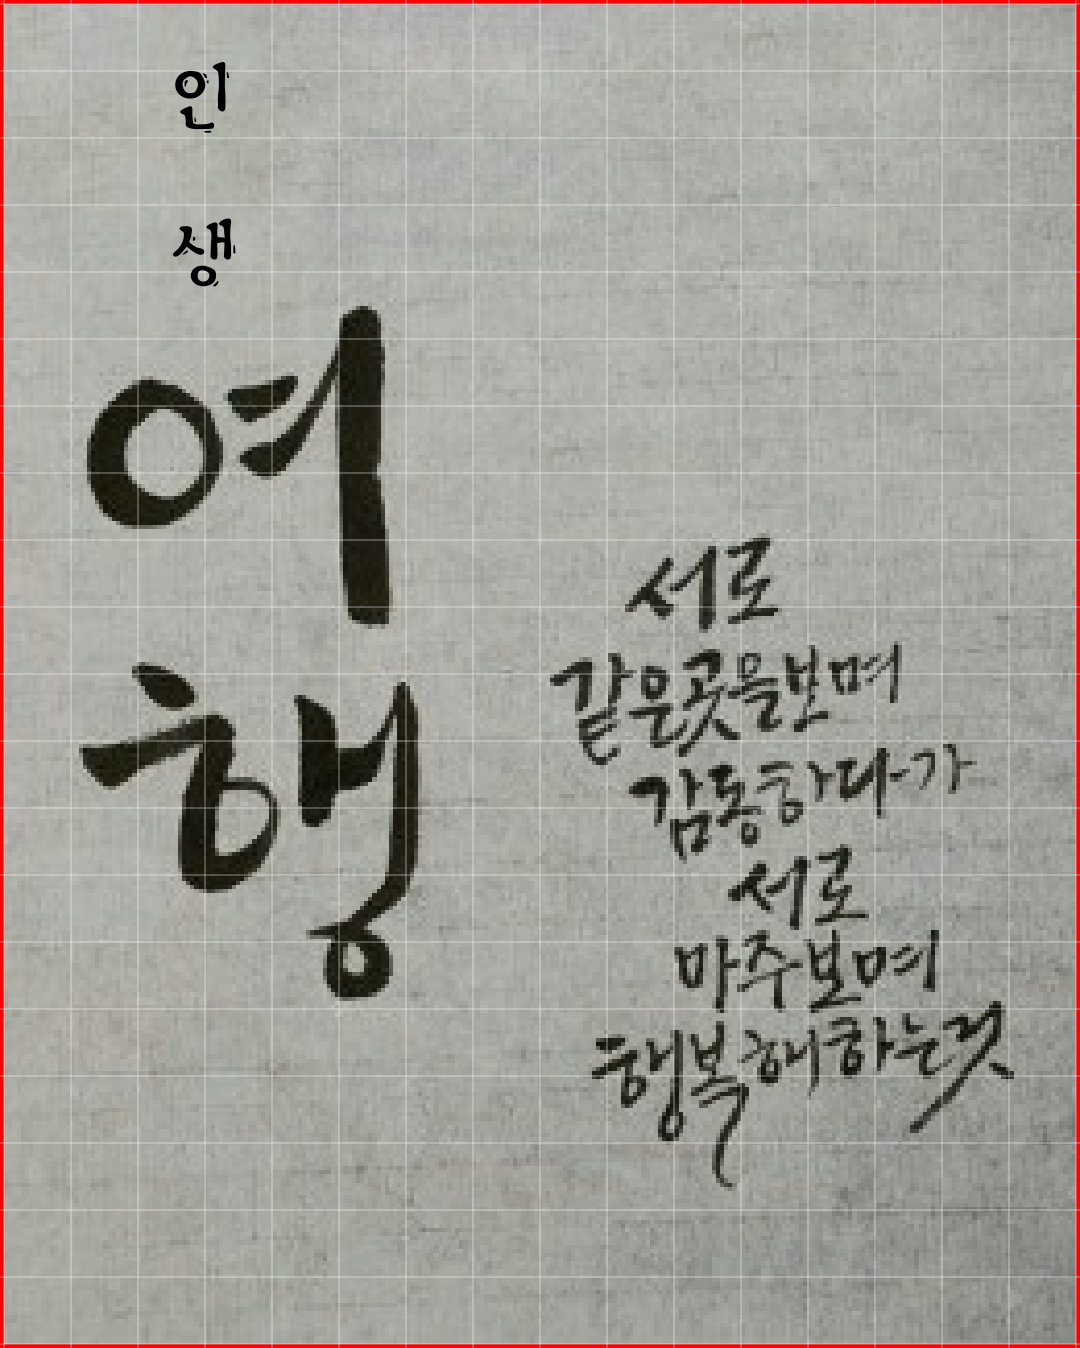 인
생
여
행
서로
같은곳을보며
감동하다가
서로
마주보며
행복해하는것